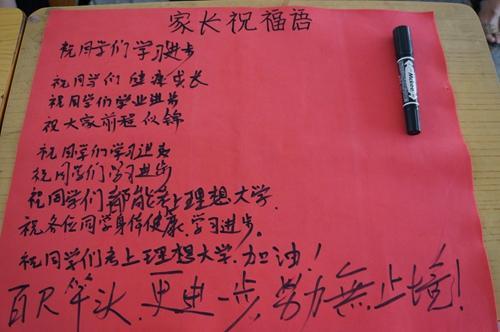 家长祝福语
祝同学们学习进步
祝同学们健康成长
祝同学们学业进步
祝大家前程似锦
祝同学们学习进步
祝同学们学习进步
祝同学们都能考上理想大学.
祝各位同学身体健康,学习进步。
祝同学们考上理想大学.加油!
百尺竿头,更进一步,努力無止境!